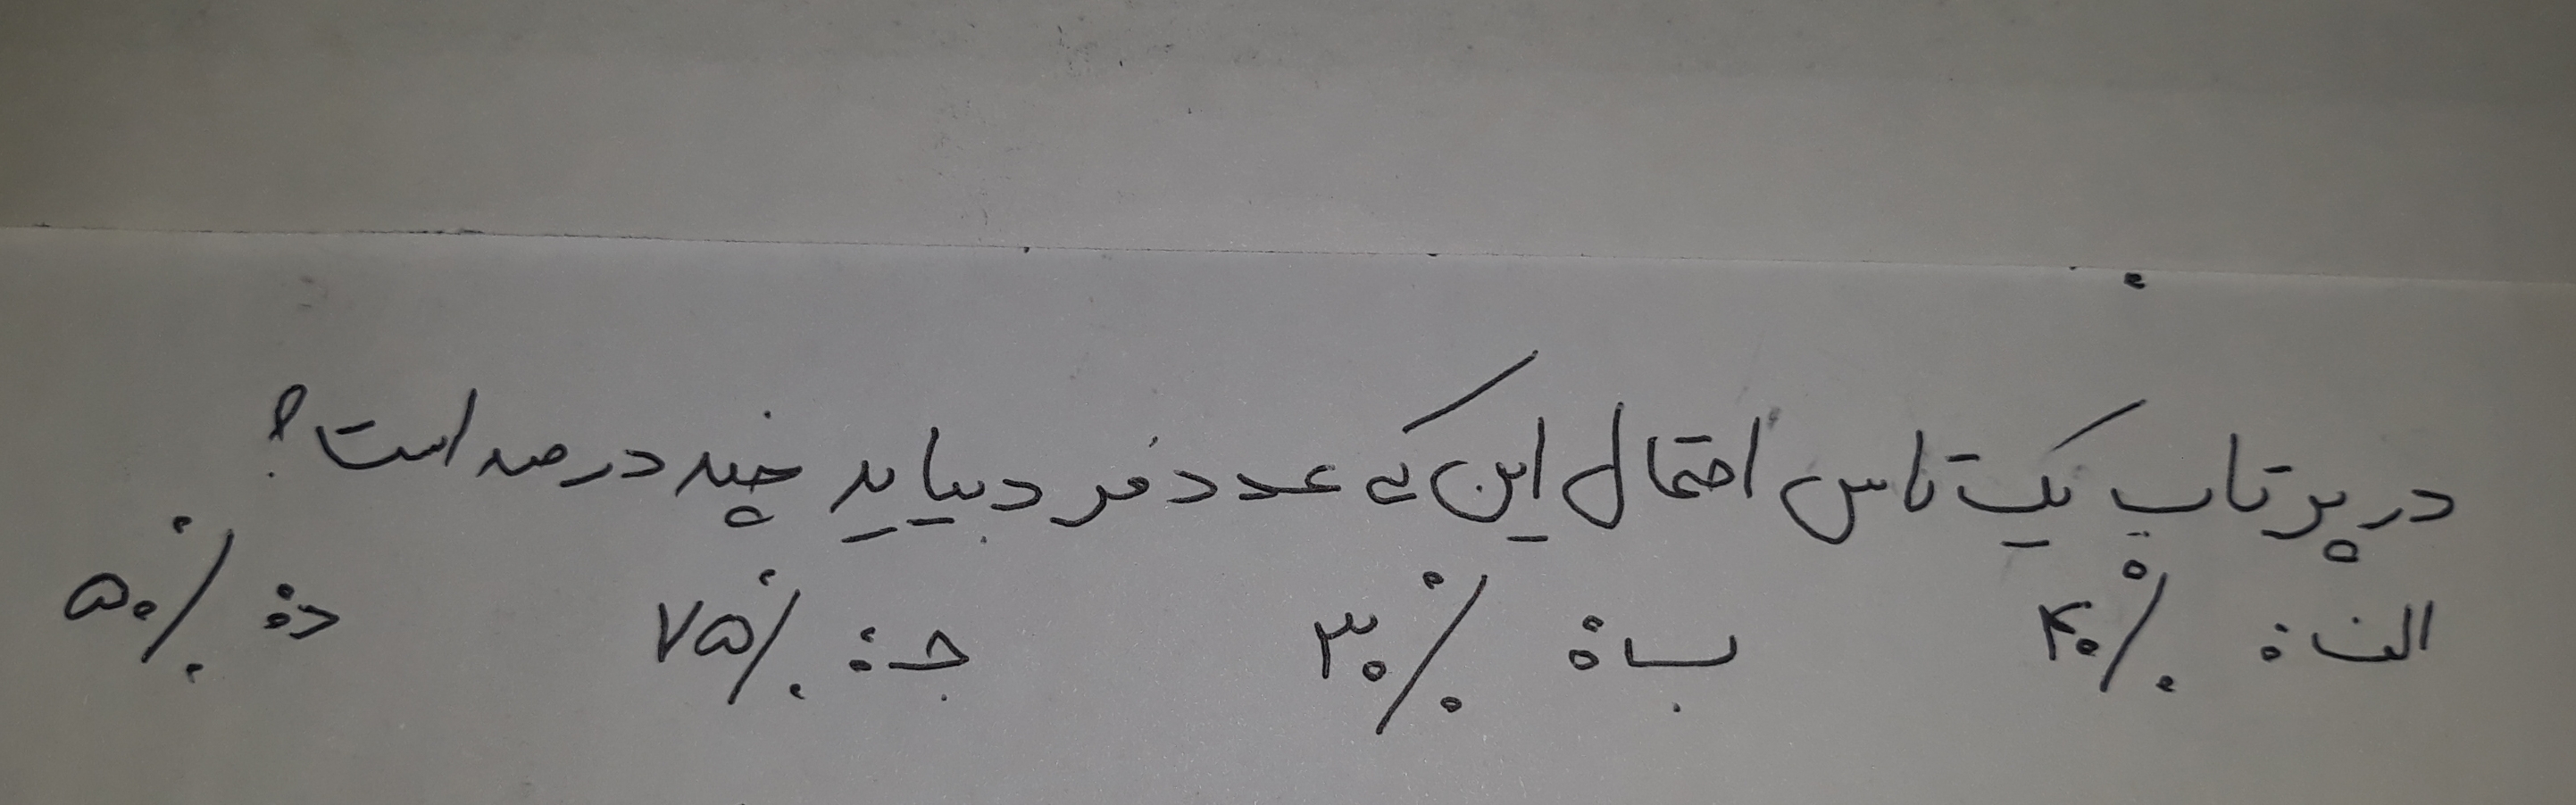 در پرتاب یک تاس احتمال این کی عدد فرد بیاید چند درصد است؟
الف: ۴۰٪ ب: ۳۰٪ ج: ۷۵٪ د: ۵۰٪